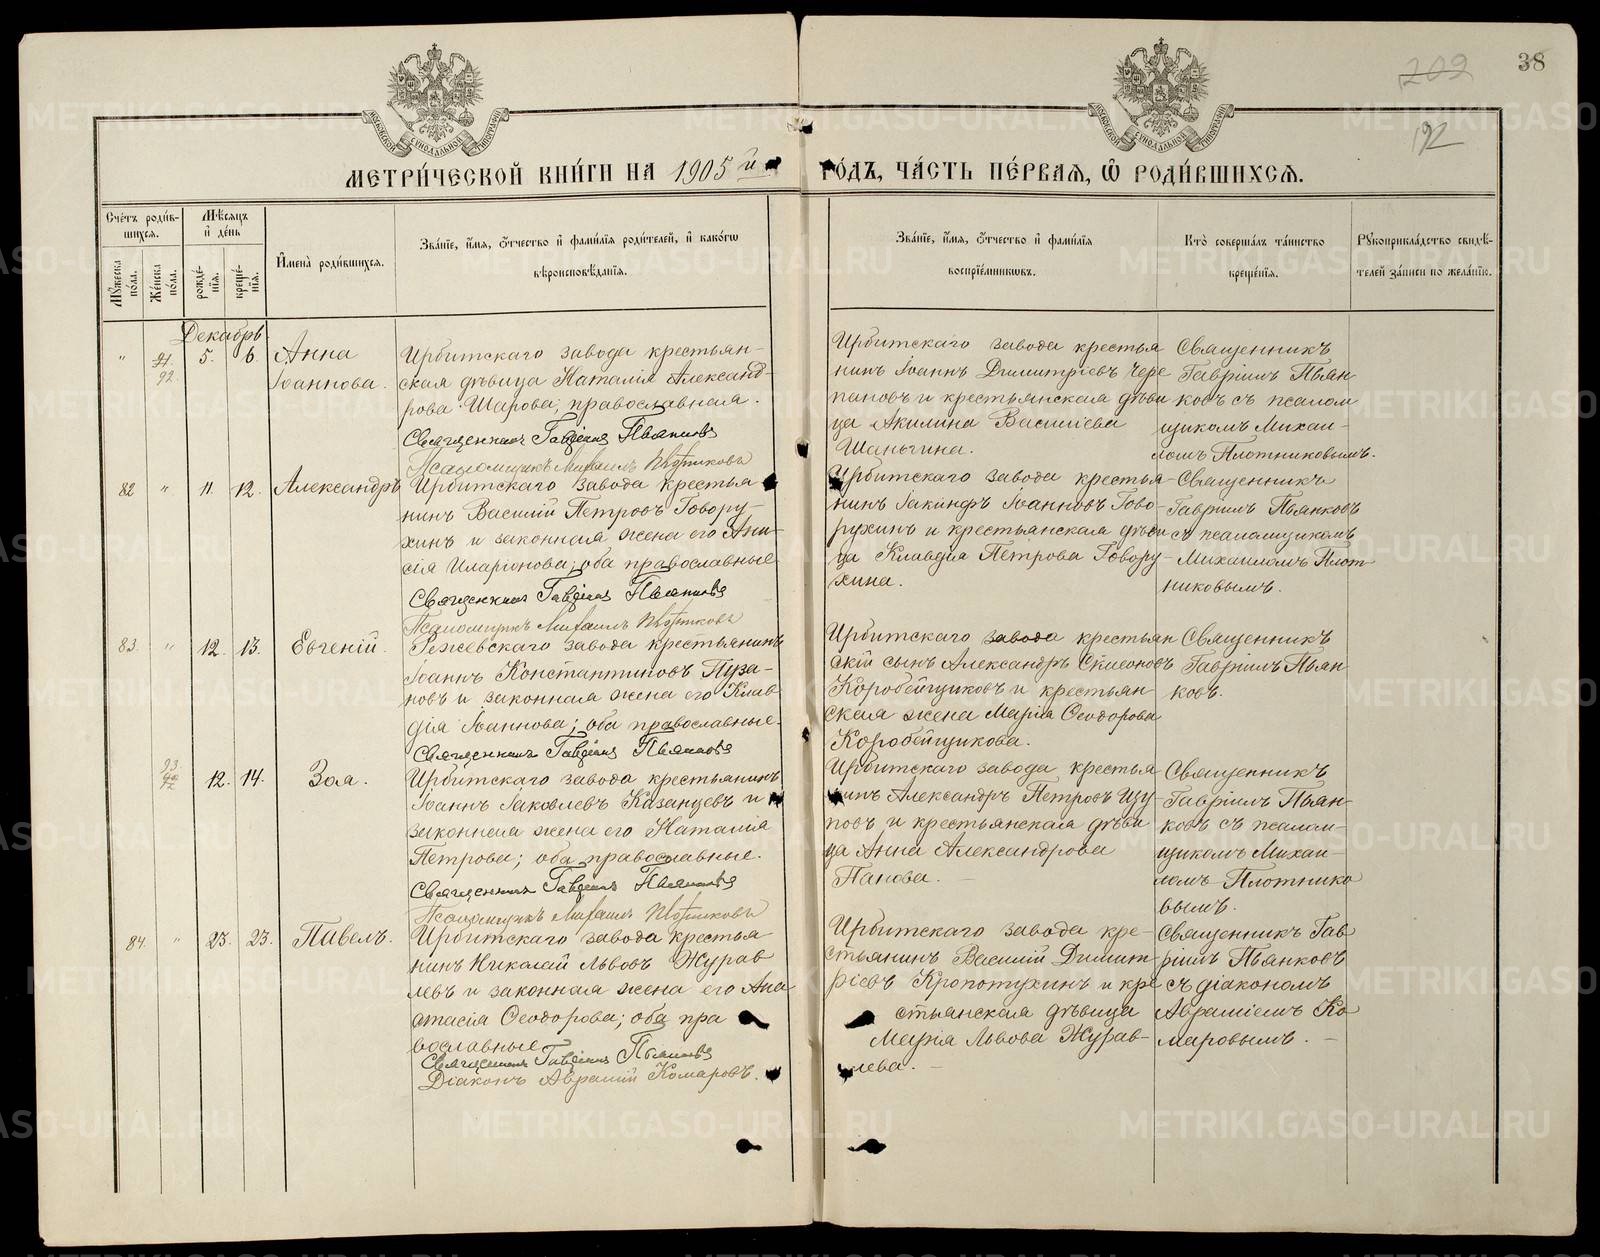 209
38
192
МОСКОВСКОЙ СУНОДАЛЬНОЙ ТИПОГРАФІИ
МОСКОВСКОЙ СУНОДАЛЬНОЙ ТИПОГРАФІИ
МЕТРИ́ЧЕСКОЙ КНИ́ГИ НА 1905й
ГО́ДЪ, ЧА́СТЬ ПЕ́РВАѦ, Ѡ҆ РОДИ́ВШИХСѦ.
Сче́тъ роди́в-
шихсѧ.
Мꙋ́жеска по́ла.
Же́нска по́ла.
Мѣ́сѧцъ
и҆ де́нь
рожде́-
нїѧ.
креще́-
нїѧ.
И҆мена̀ роди́вшихсѧ.
Зва́нїе, и҆́мѧ, ѻ҆́тчество и҆ фами́лїѧ роди́телей, и҆ како́гѡ
вѣроисповѣ́данїѧ.
Зва́нїе, и҆́мѧ, ѻ҆́тчество и҆ фами́лїѧ
воспрїе́мникѡвъ.
Кто̀ соверша́лъ та́инство
креще́нїѧ.
Рꙋкоприкла́дство свидѣ́-
телей за́писи по жела́нїю.
Декабрь
" 91 92 5. 6. Анна
Іоаннова.
Ирбитскаго завода крестьян-
ская дѣвица Наталія Александ-
рова Шарова, православная.
Священникъ Гавріилъ Пьянковъ
Псаломщикъ Михаилъ Плотниковъ
Ирбитскаго завода крестья
нинъ Іоаннъ Димитріевъ Чере
пановъ и крестьянская дѣви
ца Акилина Василіева
Шаньгина.
Священникъ
Гавріилъ Пьян
ковъ съ псалом
щикомъ Михаи-
ломъ Плотниковымъ.
82 " 11. 12. Александръ
Ирбитскаго завода крестья
нинъ Василій Петровъ Говору-
хинъ и законная жена его Ани-
сія Иларіонова; оба православные
Священникъ Гавріилъ Пьянковъ
Псаломщикъ Михаилъ Плотниковъ
Ирбитскаго завода крестья-
нинъ Іакинфъ Іоанновъ Гово-
рухинъ и крестьянская дѣви
ца Клавдія Петрова Говору-
хина.
Священникъ
Гавріилъ Пьянковъ
съ псаломщикомъ
Михаиломъ Плот
никовымъ.
83. " 12. 13. Евгеній.
Режевскаго завода крестьянинъ
Іоаннъ Константиновъ Пуза-
новъ и законная жена его Клав
дія Іоаннова; оба православные.
Священникъ Гавріилъ Пьянковъ
Ирбитскаго завода крестьян
скій сынъ Александръ Симеоновъ
Коробейщиковъ и крестьян
ская жена Марія Ѳеодорова
Коробейщикова.
Священникъ
Гавріилъ Пьян
ковъ.
93. 92 12. 14. Зоя.
Ирбитскаго завода крестьянинъ
Іоаннъ Іаковлевъ Казанцевъ и
законная жена его Наталія
Петрова; оба православные.
Священникъ Гавріилъ Пьянковъ
Псаломщикъ Михаилъ Плотниковъ
Ирбитскаго завода крестья
нинъ Александръ Петровъ Щу-
повъ и крестьянская дѣви
ца Анна Александрова
Панова. —
Священникъ
Гавріилъ Пьян-
ковъ съ псалом-
щикомъ Михаи-
ломъ Плотнико
вымъ.
84. " 23. 23. Павелъ.
Ирбитскаго завода крестья
нинъ Николай Львовъ Журав
левъ и законная жена его Ана
стасія Ѳеодорова; оба пра
вославные
Священникъ Гавріилъ Пьянковъ
Діаконъ Аврамій Комаровъ.
Ирбитскаго завода кре-
стьянинъ Василій Димит
ріевъ Кропотухинъ и кре
стьянская дѣвица
Марія Львова Журав-
лева. —
Священникъ Гав
ріилъ Пьянковъ
съ діакономъ
Аврамiемъ Ко
маровымъ. —
METRIKI.GASO-URAL.RU